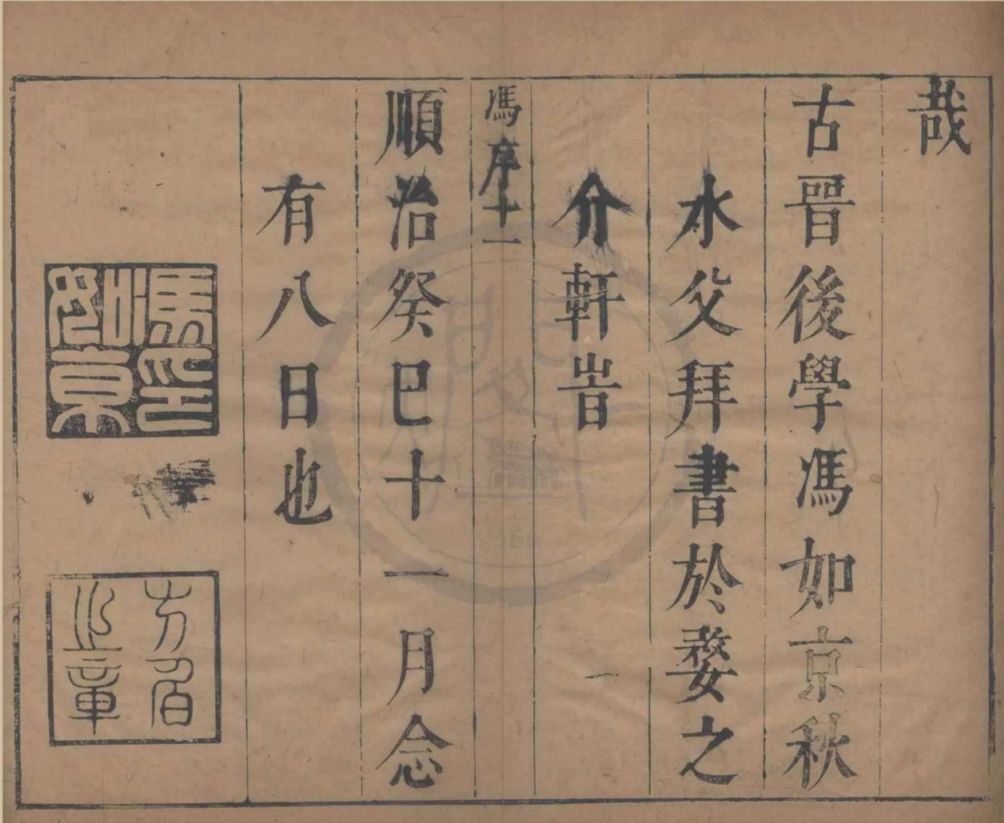 哉
古晉後學馮如京秋
水父拜書於婺之
介軒旹
馮序十一
順治癸巳十一月念
有八日也
馮印如京
方之章